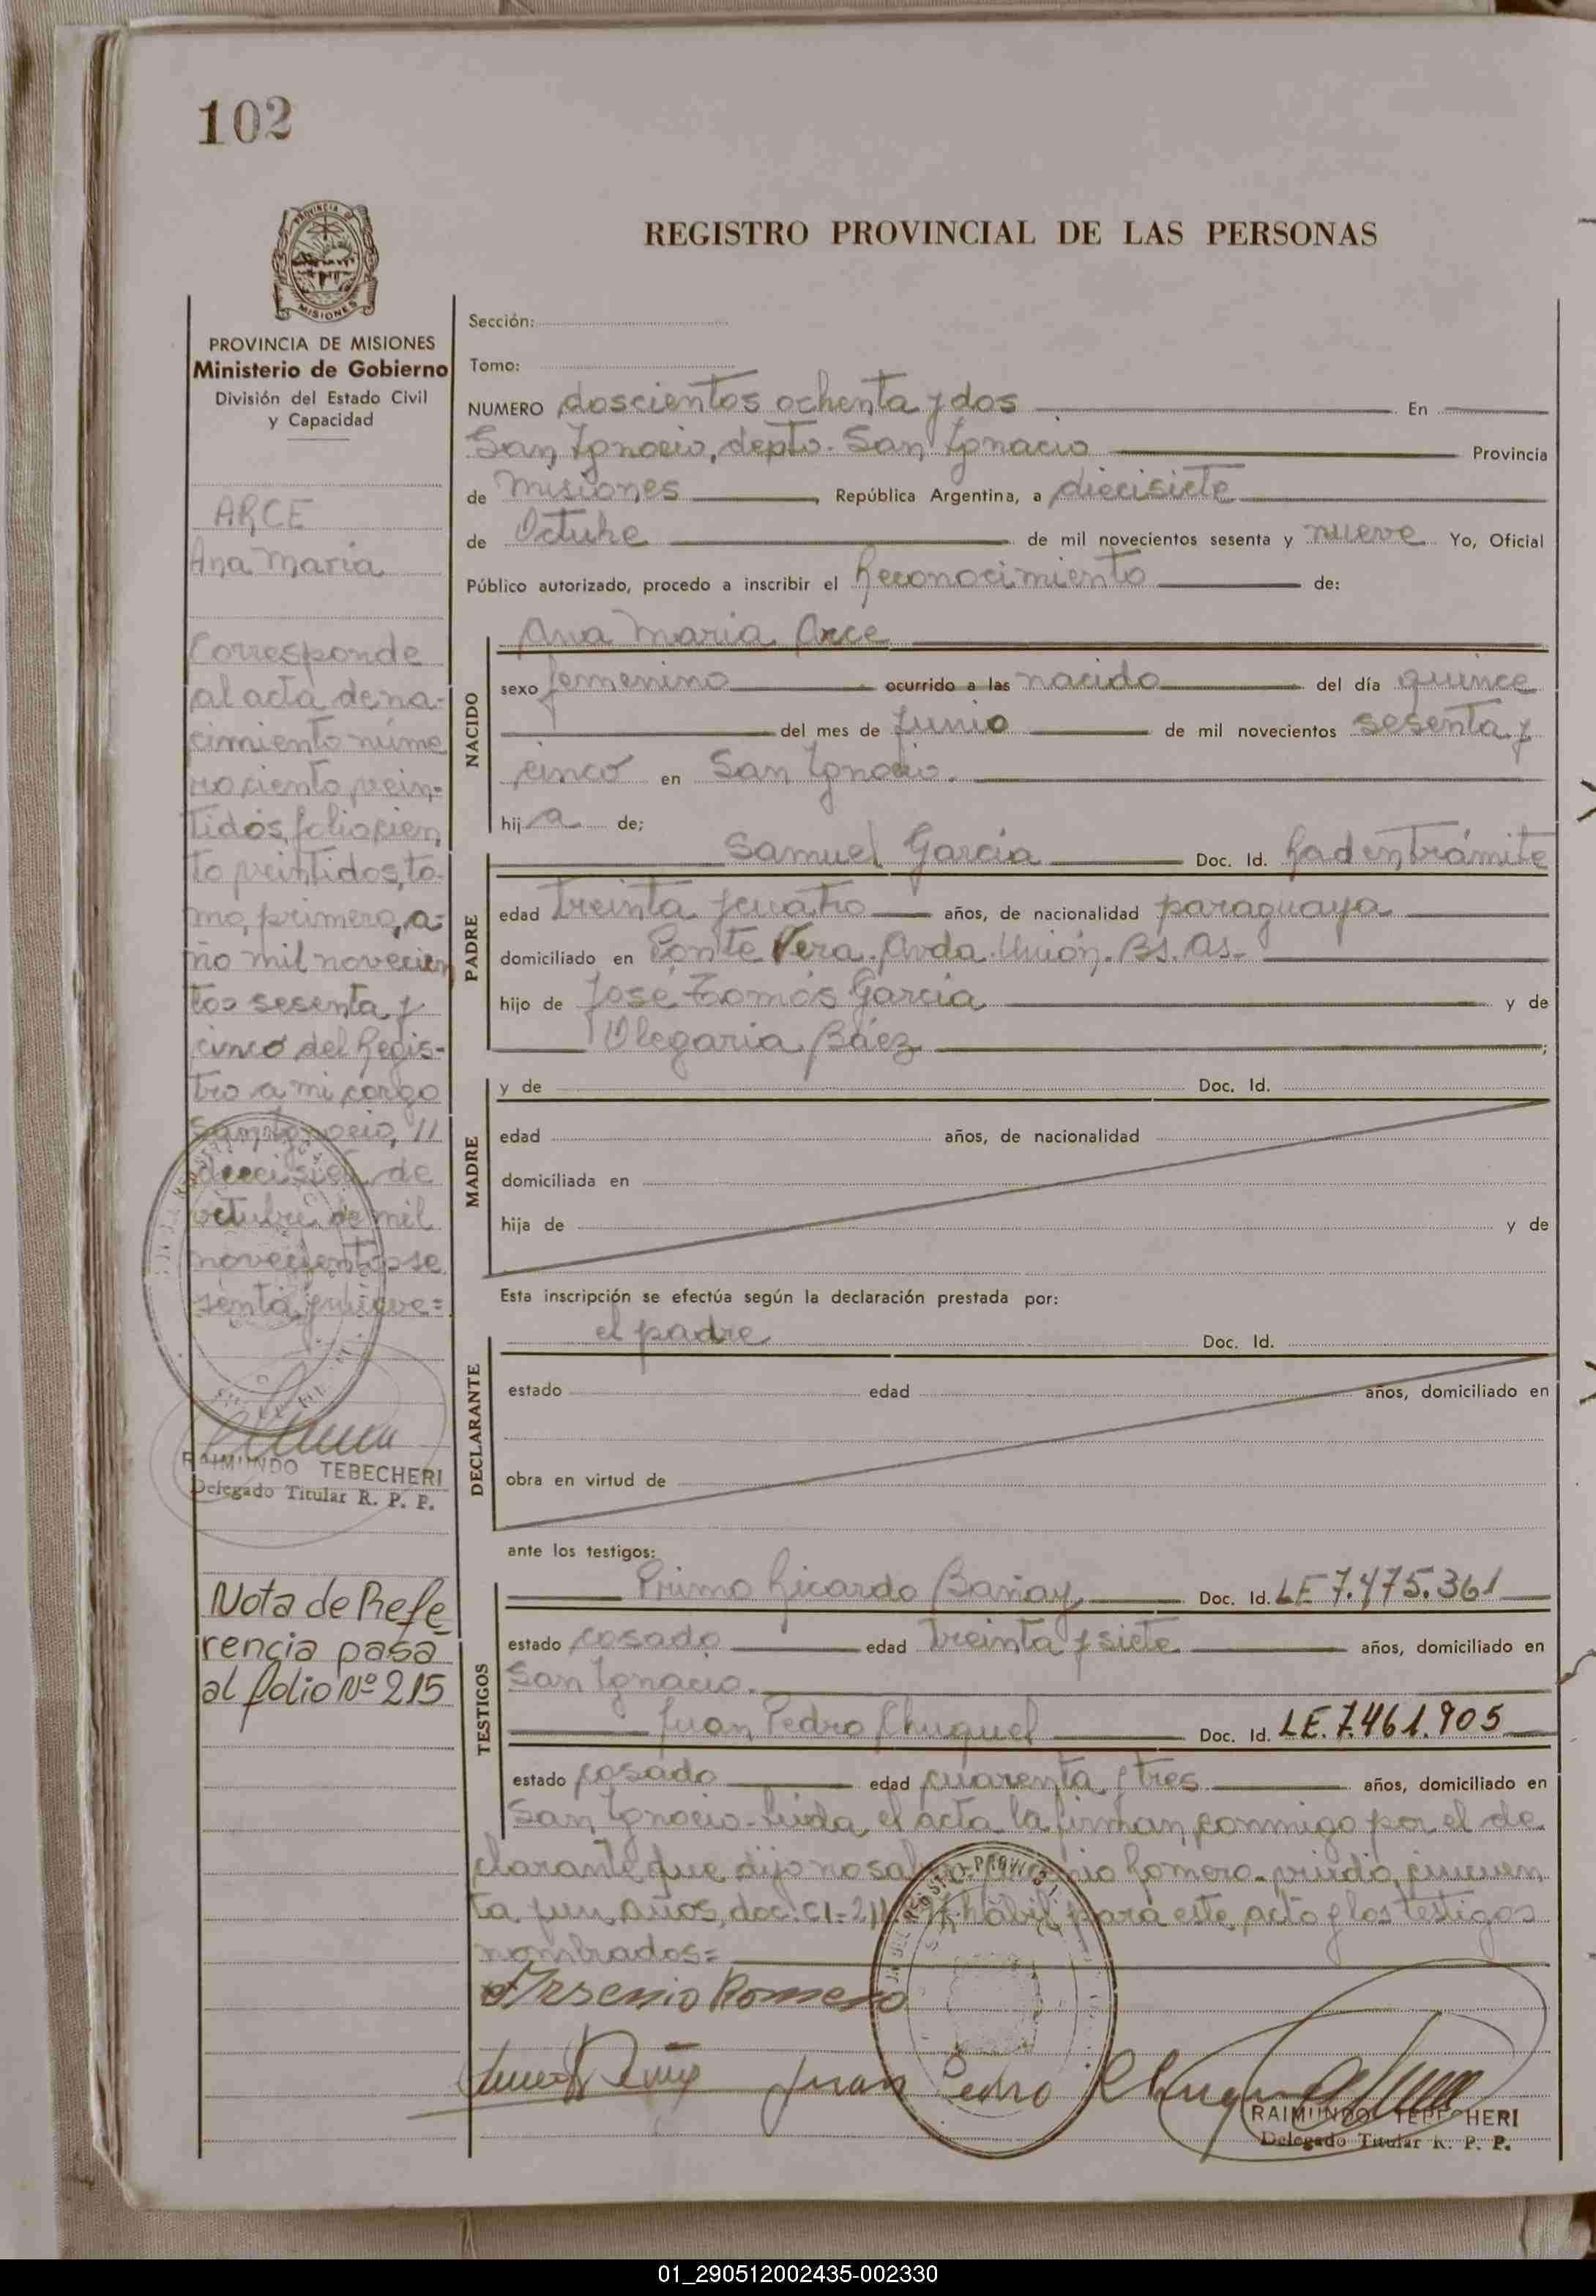 102
REGISTRO PROVINCIAL DE LAS PERSONAS
PROVINCIA DE
MISIONES
PROVINCIA DE MISIONES
Ministerio de Gobierno
División del Estado Civil
y Capacidad
ARCE
Ana María
Corresponde
al acta de na-
cimiento núme
ro ciento vein-
tidós, folio cien
to veintidos, to-
mo, primero, a-
ño mil novecien
tos sesenta y
cinco del Regis-
tro a mi cargo
San Ignacio, 11
diecisiete de
octubre de mil
novecientos se
senta y nueve=
RAIMUNDO TEBECHERI
Delegado Titular R. P. P.
Nota de Refe
rencia pasa
al folio Nº 215
Sección:
Tomo:
NUMERO doscientos ochenta y dos En
San Ignacio, depto. San Ignacio Provincia
de Misiones, República Argentina, a diecisiete
de Octubre de mil novecientos sesenta y nueve Yo, Oficial
Público autorizado, procedo a inscribir el Reconocimiento de:
NACIDO
Ana María Arce
sexo femenino ocurrido a las nacido del día quince
del mes de Junio de mil novecientos sesenta y
cinco en San Ignacio.
hij a de;
PADRE
Samuel García Doc. Id. Rad en trámite
edad treinta y cuatro años, de nacionalidad paraguaya
domiciliado en Ponte Vera. Avda. Unión. Bs. As.
hijo de José Tomás García y de
Olegaria Báez ;
MADRE
y de Doc. Id.
edad años, de nacionalidad
domiciliada en
hija de y de
Esta inscripción se efectúa según la declaración prestada por:
DECLARANTE
el padre Doc. Id.
estado edad años, domiciliado en
obra en virtud de
ante los testigos:
TESTIGOS
Primo Ricardo Doc. Id. LE 7.475.361
estado casado edad treinta y siete años, domiciliado en
San Ignacio.
Juan Pedro Chuquel Doc. Id. LE. 7.461.905
estado casado edad cuarenta y tres años, domiciliado en
San Ignacio. Leída el acta la firman conmigo por el de
clarante que dijo no Romero. viudo, cincuen
ta y un años, doc. CI- hábil para este acto y los testigos
nombrados=
Arsenio Romero
Juan Pedro
RAIMUNDO TEBECHERI
Delegado Titular R. P. P.
01_290512002435-002330